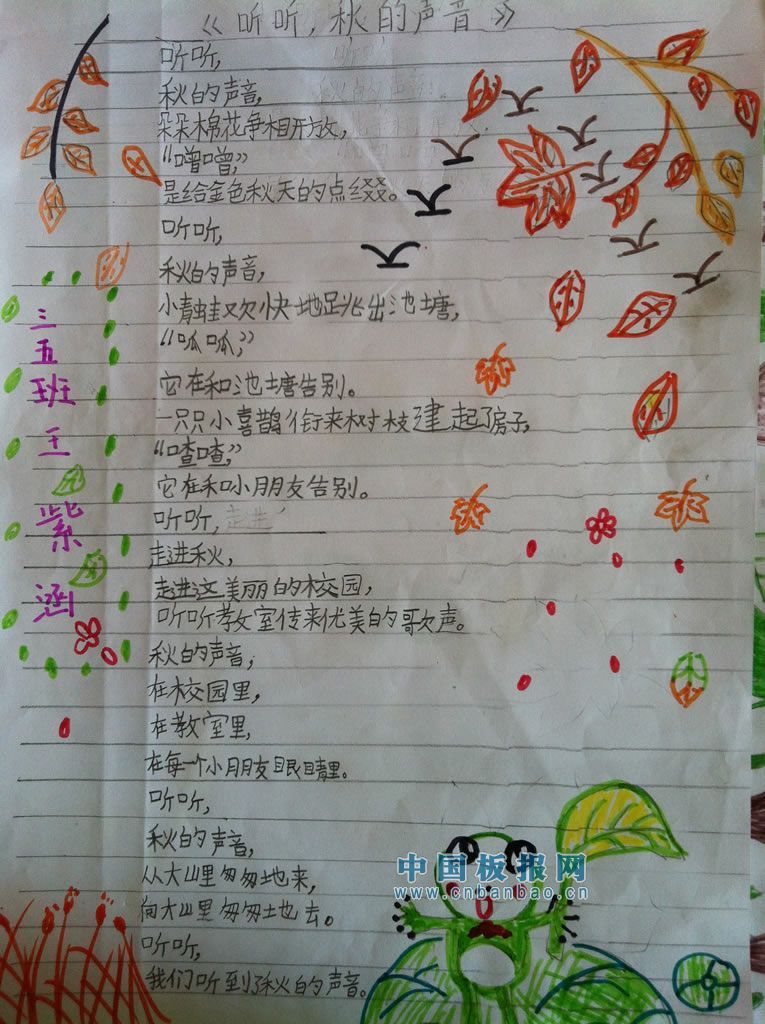 《听听,秋的声音》
听听,
秋的声音,
朵朵棉花争相开放,
“噌噌,”
是给金色秋天的点缀。
听听,
秋的声音,
小青蛙欢快地跳出池塘,
“呱呱,”
它在和池塘告别。
一只只小喜鹊衔来树枝建起了房子,
“喳喳,”
它在和小朋友告别。
听听,
走进秋,
走进这美丽的校园,
听听教室传来优美的歌声。
秋的声音,
在校园里,
在教室里,
在每一个小朋友眼睛里。
听听,
秋的声音,
从大山里匆匆地来,
向大山里匆匆地去。
听听,
我们听到了秋的声音。
三五班王紫涵
中国板报网
www.cnbanbao.cn